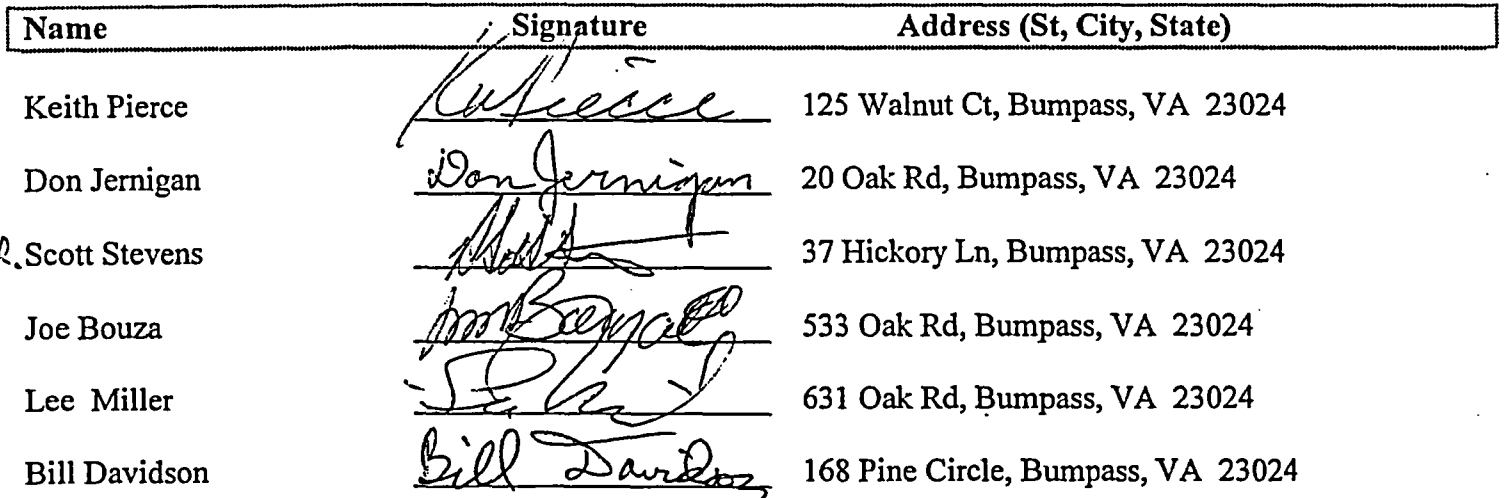 Name Signature Address (St, City, State)
Keith Pierce 125 Walnut Ct, Bumpass, VA 23024
Don Jernigan Don Jernigan 20 Oak Rd, Bumpass, VA 23024
Scott Stevens 37 Hickory Ln, Bumpass, VA 23024
Joe Bouza 533 Oak Rd, Bumpass, VA 23024
Lee Miller 631 Oak Rd, Bumpass, VA 23024
Bill Davidson Bill Davidson 168 Pine Circle, Bumpass, VA 23024